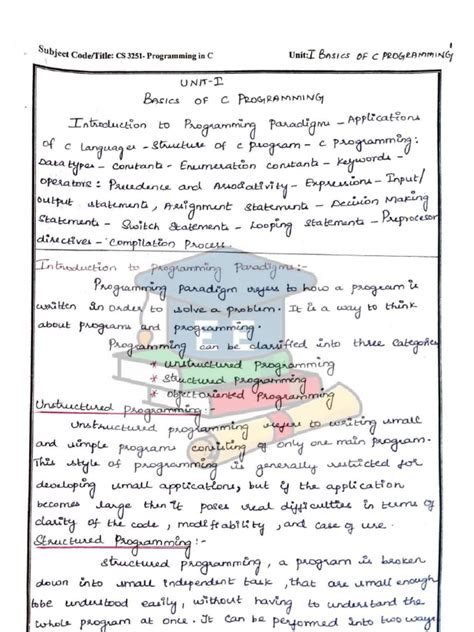 1
Subject Code/Title: CS 3251- Programming in C Unit: I BASICS OF C PROGRAMMING
UNIT-I
BASICS OF C PROGRAMMING
Introduction to Programming Paradigms - Applications
of C Language - Structure of C program - C programming:
Data types - Constants - Enumeration constants - Keywords -
operators: Precedence and Associativity - Expressions - Input/
output statements, Assignment statements - Decision Making
statements - Switch Statements - Looping Statements - Preprocessor
directives - Compilation Process.
Introduction to Programming Paradigms:-
Programming Paradigm refers to how a program is
written in order to solve a problem. It is a way to think
about programs and programming.
Programming can be classified into three Categories
* unstructured Programming
* Structured Programming
* object oriented Programming
Unstructured Programming:-
Unstructured programming refers to writing small
and simple programs consisting of only one main program.
This style of programming is generally restricted for
developing small applications, but if the application
becomes large then it poses real difficulties in terms of
clarity of the code, modifiability, and ease of use.
Structured Programming:-
Structured programming, a program is broken
down into small independent task, that are small enough
to be understood easily, without having to understand the
whole program at once. It can be performed into two ways